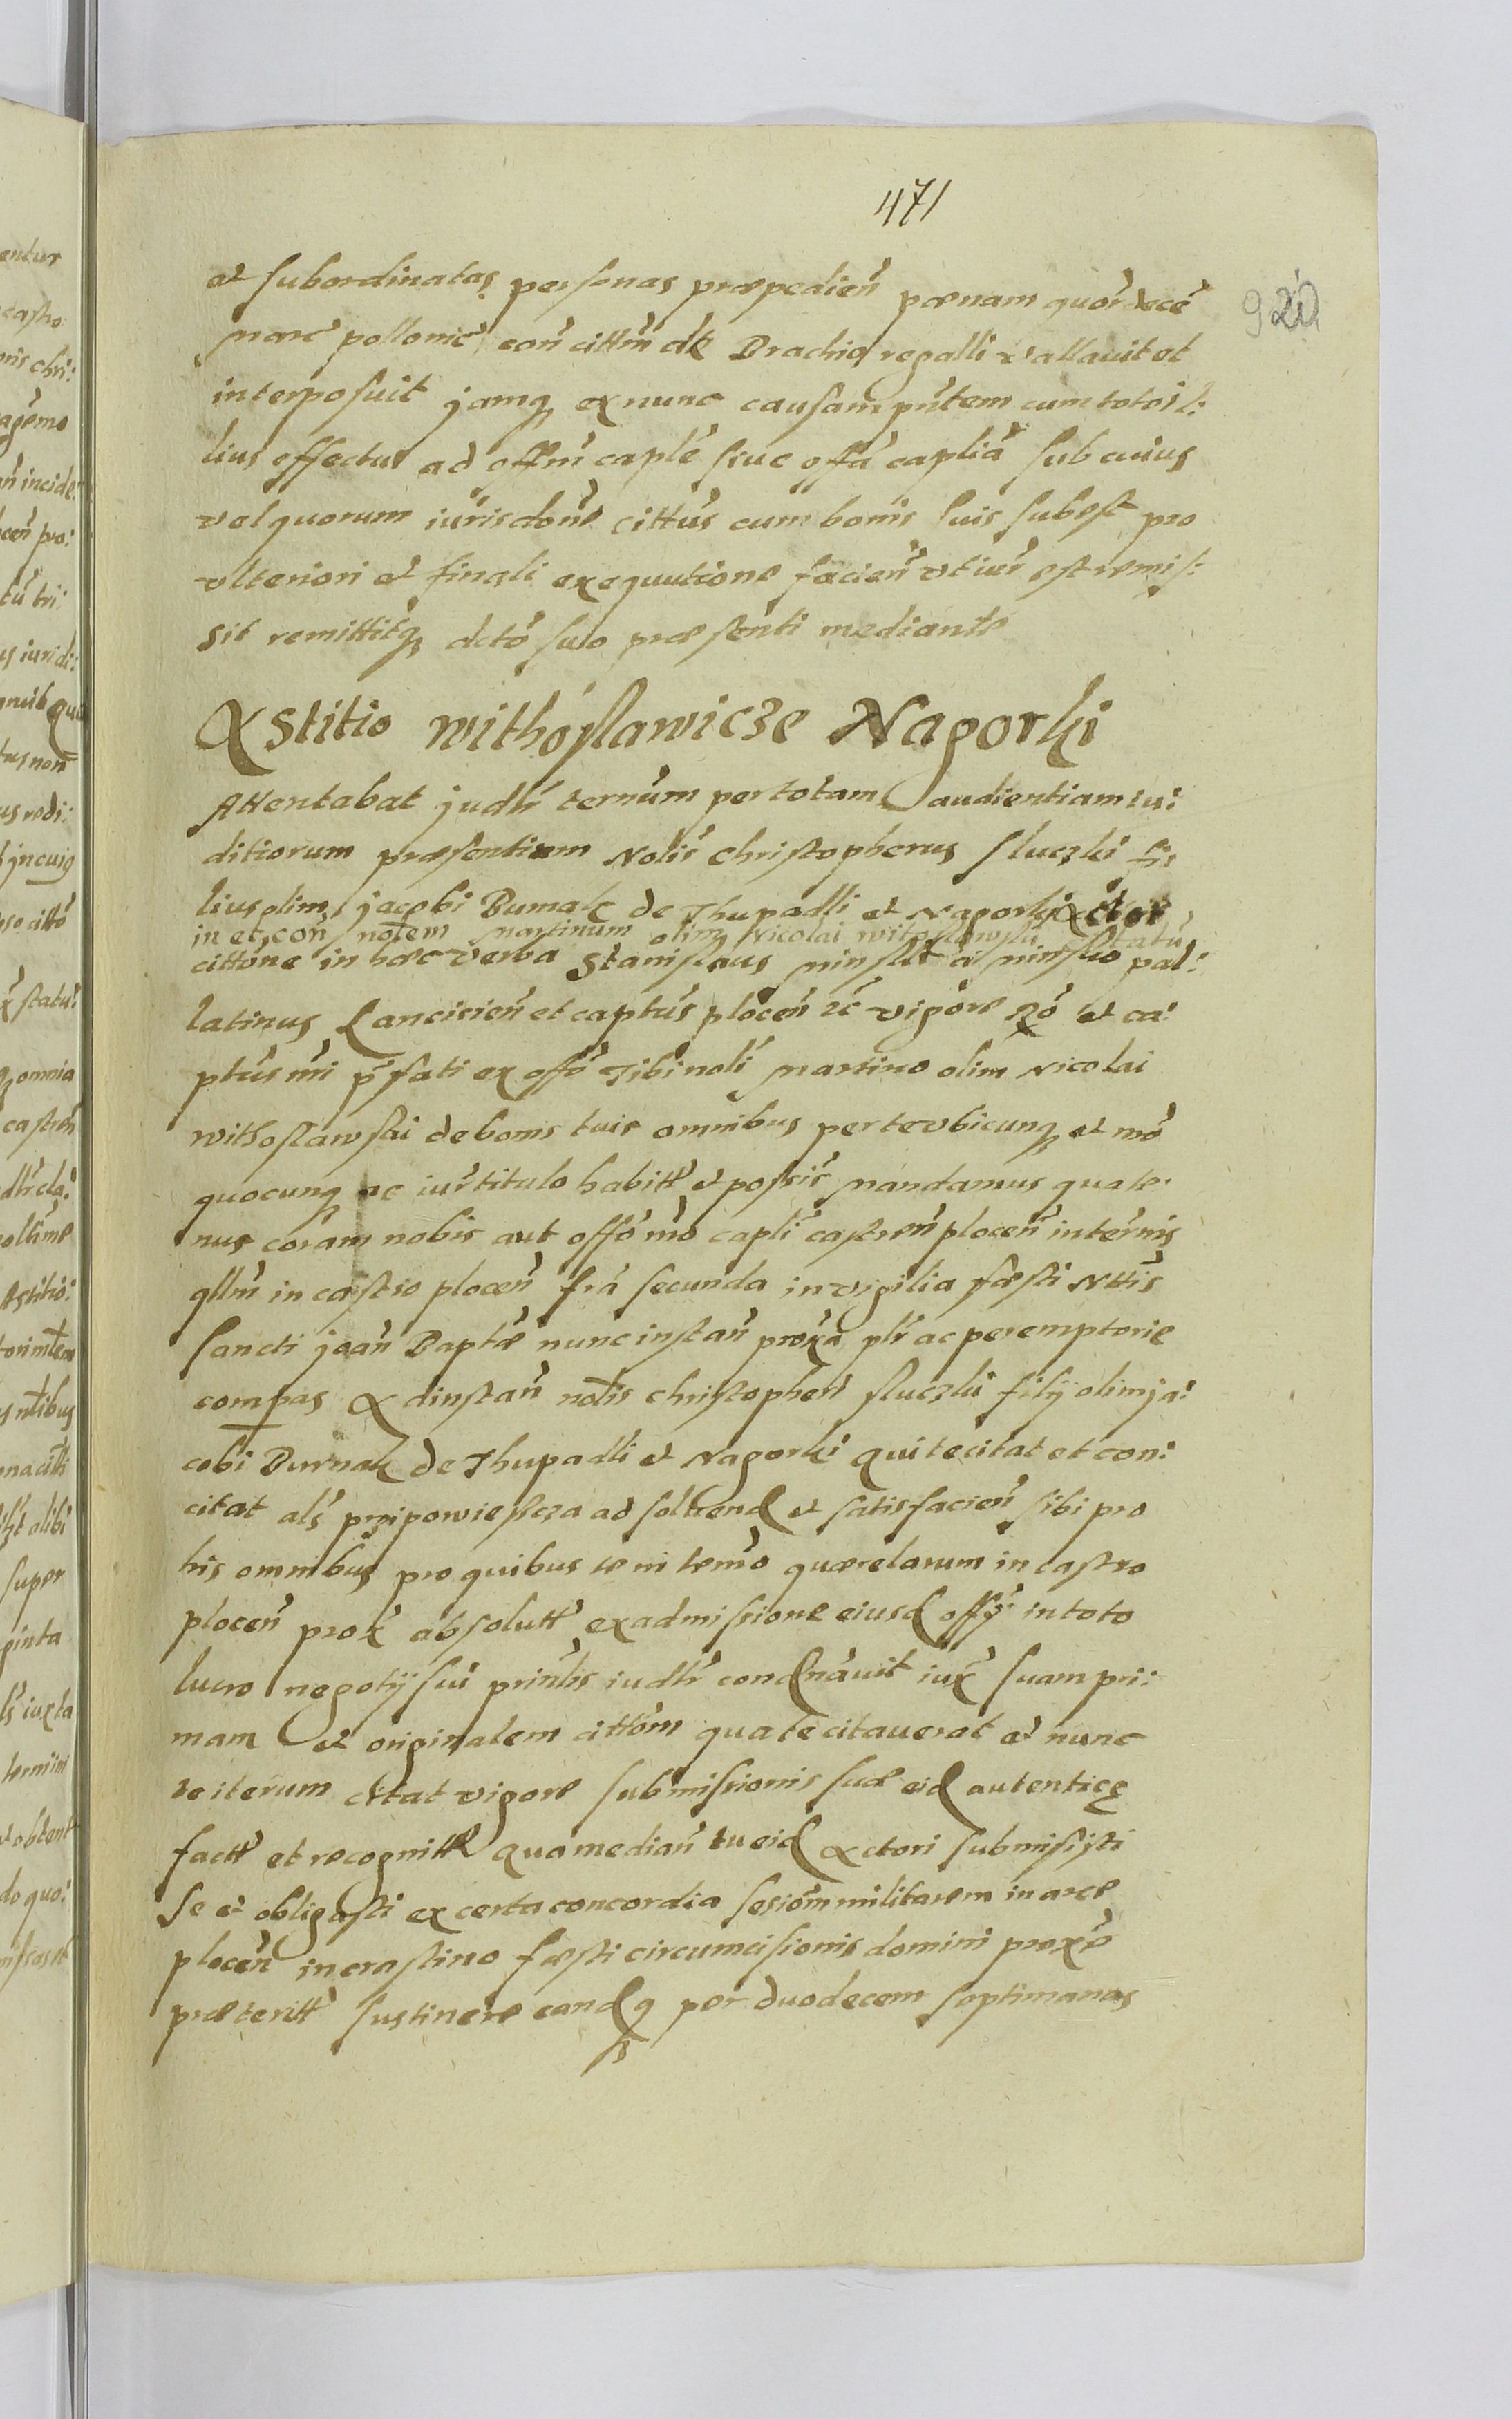 471
920
et subordinatas personas præpedien̄ pœnam quor̄ decē
marc̄ polonic̄ con̄ cittm̄ de Brachio regalli vallavit et
interposuit jamq ex nunc causam pn̄tem cum toto il:
lius effectus ad offm̄ caplē siue offā capliā sub cuius
vel quorum iurisdone cittus cum bonis suis subest pro
vlteriori et finali exequutione facien̄ vt iur̄ est remis:
sit remittitq dctō suo præsenti mediante
Astitio withoslawicze Nagorki
Attentabat judlr̄ ternūm per totam audientiam iu:
ditiorum præsentium Nolis̄ Christopherus sluczki fi:
lius olim jacobi Burnak de Thupadli et Nagorki Actor
in et con̄ notem martinum olim Nicolai witoslawski statū
cittone in hæc verba Stanislaus minski à minsko pal:
latinus Lancicien̄ et captūs plocen̄ zc̄ vigore Rō et ca:
ptūs nr̄i p̄fati ex offō Tibi nolī martino olim Nicolai
withoslawski de bonis tuis omnibus per te vbicunq et mō
quocunq ac iur̄ titulo habitt̄ et possis̄ mandamus quate:
nus coram nobis aut offō nr̄o caplī castren̄ plocen̄ in ter̄nis
qllm̄ in castro plocen̄ fr̄ā secunda in vigilia fæsti Nttis̄
sancti joan̄ Baptæ nunc instan̄ proxā plr̄ ac peremptorie
compas Ad instan̄ notis Christopheri sluczki filij olim ja:
cobi Burnak de Thupadli et Nagorki qui te citat et con:
citat als̄ pripowiescza ad solvend et satisfacien̄ sibi pro
his omnibus pro quibus te in ter̄mo quærelarum in castro
plocen̄ prox̄ absolutt̄ ex admissione eiusd offij in toto
lucro negotij sui prin̄lis iudlr̄ condnavit iux̄ suam pri:
mam et originalem cittom̄ qua te citauerat et nunc
te iterum citat vigore submissionis suæ eid autenticę
factt̄ et recognitt̄ qua median̄ tu eid Actori submisisti
se et obligasti ex certa concordia sesiom̄ militarem in arce
plocen̄ in crastino fæsti circumcisionis domini proxē
præteritt̄ sustinere eandq per duodecem septimanas